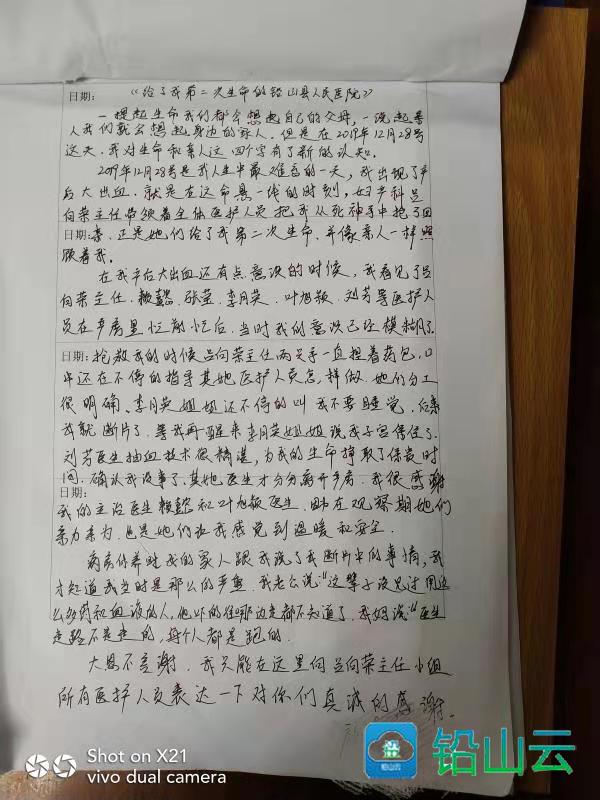 日期: 《给了我第二次生命的铅山县人民医院》
一提起生命我们都会想起自己的父母,一说起亲
人我们就会想起身边的家人。但是在2019年12月28号
这天,我对生命和亲人这四个字有了新的认知。
2019年12月28号是我人生中最难忘的一天,我出现了产
后大出血,就是在这命悬一线的时刻,妇产科吕
向荣主任带领着全体医护人员把我从死神手中抢了回
日期: 来,正是她们给了我第二次生命,并像亲人一样照
顾着我。
在我产后大出血还有点意识的时候,我看见了吕
向荣主任、赖懿、张莹、李月英、叶旭颖、刘芳等医护人
员在产房里忙前忙后,当时我的意识已经模糊了。
日期: 抢救我的时候吕向荣主任两只手一直捏着药包,口
中还在不停的指导其她医护人员怎么样做,她们分工
很明确、李月英姐姐还不停的叫我不要睡觉,后来
我就断片了。等我再醒来李月英姐姐说我子宫保住了。
刘芳医生抽血技术很精湛,为我的生命挣取了保贵时
间。确认我没事了,其她医生才分分离开产房。我很感谢
日期:
我的主治医生赖懿和叶旭颖医生,因为在观察期她们
亲力亲为,也是她们让我感觉到温暖和安全。
病房休养时我的家人跟我说了我断片中的事情,我
才知道我当时是那么的严重。我老公说:“这辈子没见过用这
么多药和血液的人,他吓的住哪边走都不知道了。我妈说:“医生
走路不是走的,每个人都是跑的。
大恩不言谢。我只能在这里向吕向荣主任小组
所有医护人员表达一下对你们真诚的感谢。
Shot on X21
vivo dual camera
铅山云
铅山云